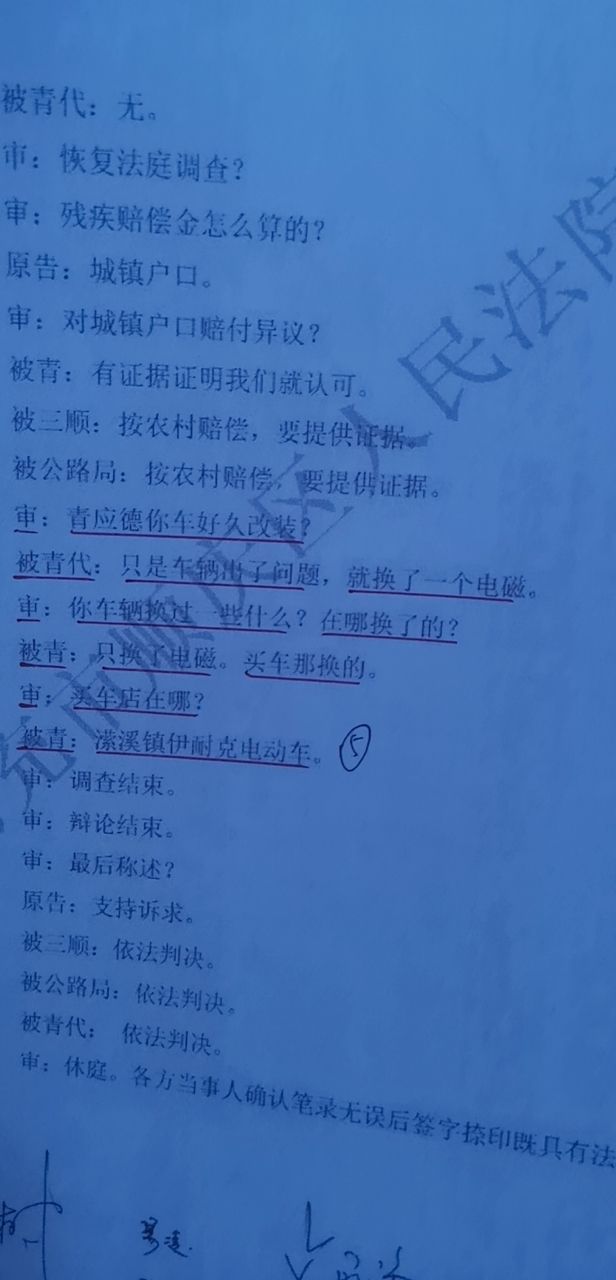 被青代：无。
审：恢复法庭调查？
审：残疾赔偿金怎么算的？
原告：城镇户口。
审：对城镇户口赔付异议？
被青：有证据证明我们就认可。
被三顺：按农村赔偿，要提供证据。
被公路局：按农村赔偿，要提供证据。
审：青应德你车好久改装？
被青代：只是车辆出了问题，就换了一个电磁。
审：你车辆换过一些什么？在哪换了的？
被青：只换了电磁。买车那换的。
审：买车店在哪？
被青：潆溪镇伊耐克电动车。⑤
审：调查结束。
审：辩论结束。
审：最后称述？
原告：支持诉求。
被三顺：依法判决。
被公路局：依法判决。
被青代： 依法判决。
审：休庭。各方当事人确认笔录无误后签字捺印既具有法
充市顺庆区人民法院